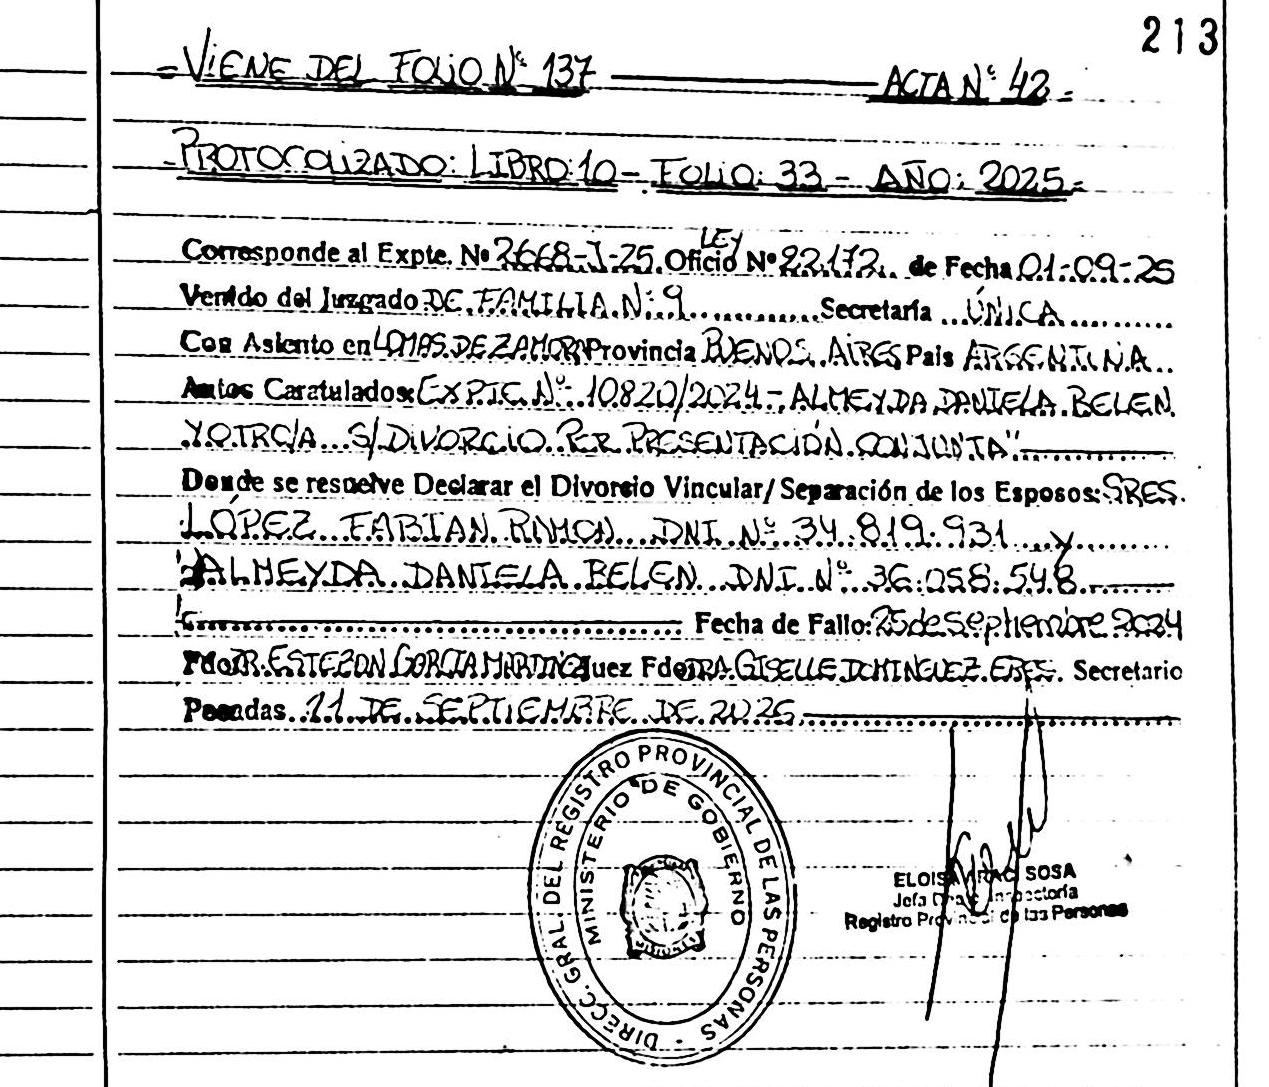 213
=VIENE DEL FOLIO Nº 137 ACTA Nº 42=
=PROTOCOLIZADO: LIBRO:10- FOLIO: 33 - AÑO: 2025=
LEY
Corresponde al Expte. Nº 2668-J-25. Oficio Nº 22.172. de Fecha 01-09-25
Venido del Juzgado DE FAMILIA Nº 9 Secretaría ÚNICA
Con Asiento en LOMAS DE ZAMORA Provincia BUENOS AIRES País ARGENTINA
Autos Caratulados: EXPTE. Nº 10820/2024- ALMEYDA DANIELA BELEN
Y OTRO/A S/DIVORCIO POR PRESENTACIÓN CONJUNTA"
Donde se resuelve Declarar el Divorcio Vincular/ Separación de los Esposos: SRES.
LÓPEZ FABIAN RAMON DNI Nº 34.819.931 y
ALMEYDA DANIELA BELEN DNI Nº 36.058.548
Fecha de Fallo: 25 de septiembre 2024
Fdo: DR. ESTEBAN GARCIA MARTINEZ Juez Fdo: DRA. GISELLE DOMINGUEZ Secretario
Posadas 11 DE SEPTIEMBRE DE
DIRECC. GRAL. DEL REGISTRO PROVINCIAL DE LAS PERSONAS
MINISTERIO DE GOBIERNO
SOSA
Registro Provincial de las Personas